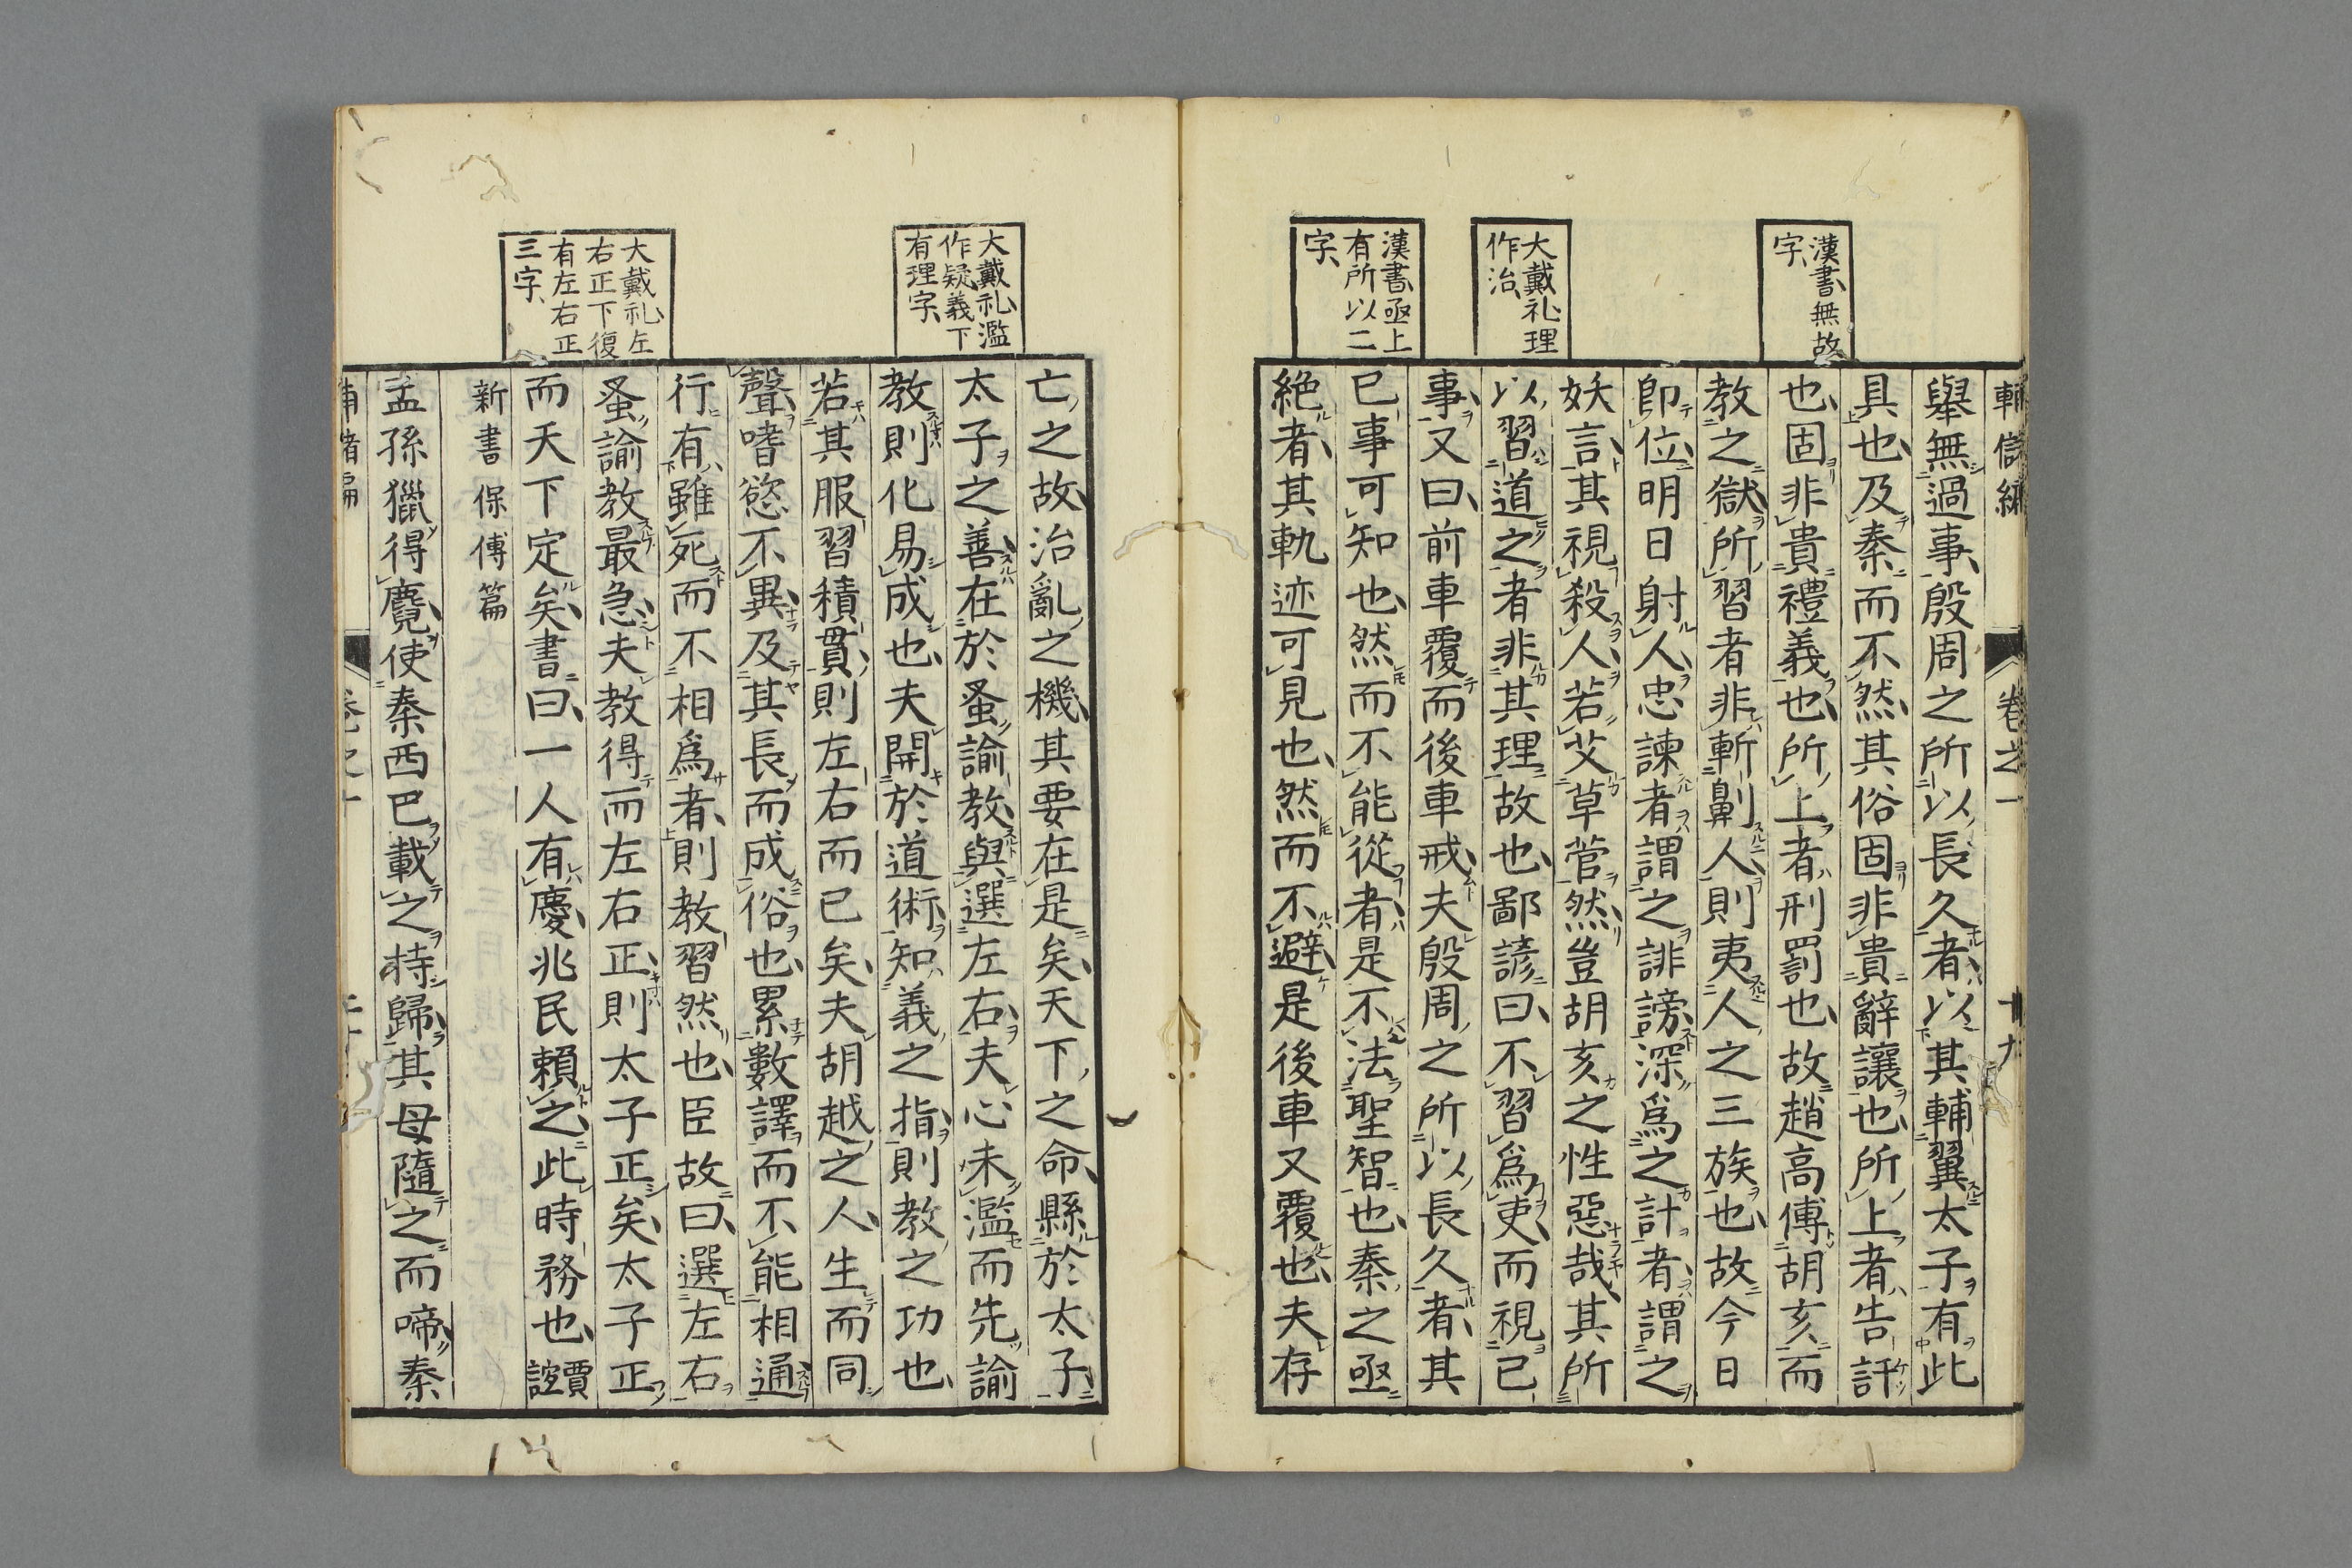 輔儲編 卷之一 十九
漢書無故
字、
大戴礼理
作治、
漢書亟上
有所以二
字、
舉無過事殷周之所以長久者以其輔翼太子有此
具也及秦而不然其俗固非貴辭讓也所上者告訐
也固非貴禮義也所上者刑罰也故趙高傅胡亥而
教之獄所習者非斬劓人則夷人之三族也故今日
卽位明日射人忠諫者謂之誹謗深爲之計者謂之
妖言其視殺人若艾草菅然豈胡亥之性惡哉其所
以習道之者非其理故也鄙諺曰不習爲吏而視已
事又曰前車覆而後車戒夫殷周之所以長久者其
已事可知也然而不能從者是不法聖智也秦之亟
絕者其軌迹可見也然而不避是後車又覆也夫存
大戴礼濫
作疑義下
有理字、
大戴礼左
右正下復
有左右正
三字、
亡之故治亂之機其要在是矣天下之命縣於太子
太子之善在於蚤諭教與選左右夫心未濫而先諭
教則化易成也夫開於道術知義之指則教之功也
若其服習積貫則左右而已矣夫胡越之人生而同
聲嗜慾不異及其長而成俗也累數譯而不能相通
行有雖死而不相爲者則教習然也臣故曰選左右
蚤諭教最急夫教得而左右正則太子正矣太子正
而天下定矣書曰一人有慶兆民賴之此時務也賈誼
新書保傅篇
孟孫獵得麑使秦西巴載之持歸其母隨之而啼秦